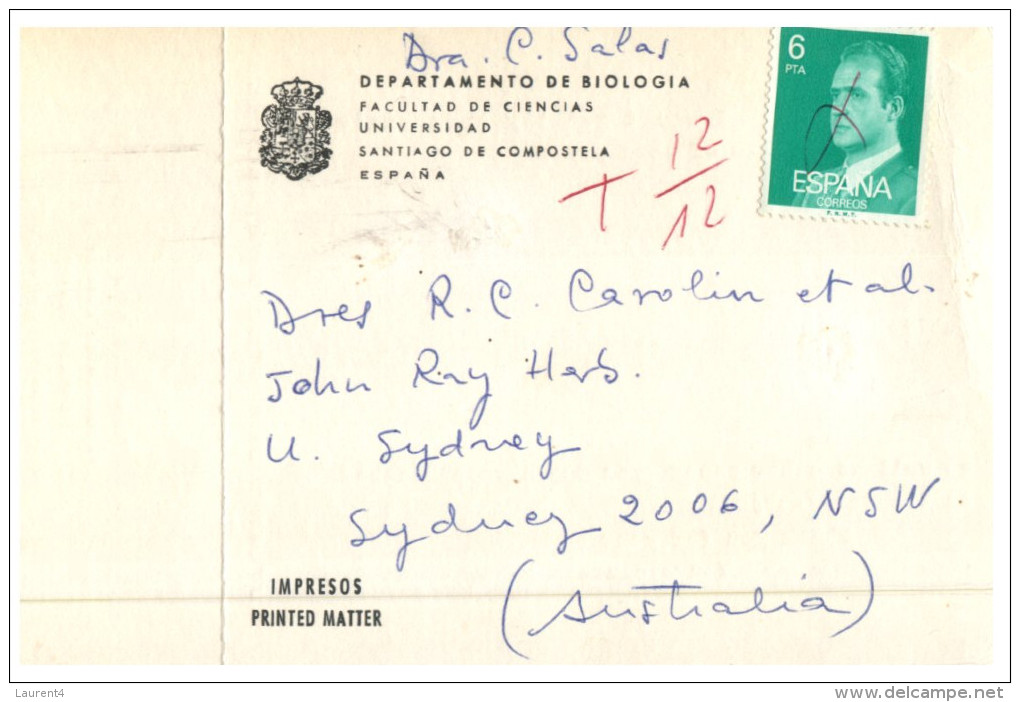 Dra. C. Salas
DEPARTAMENTO DE BIOLOGIA
FACULTAD DE CIENCIAS
UNIVERSIDAD
SANTIAGO DE COMPOSTELA
ESPAÑA
6
PTA
ESPAÑA
CORREOS
F.N.M.T.
+ 12/12
Dres R. C. Carolin et al.
John Ray Herb.
U. Sydney
Sydney 2006, NSW.
(Australia)
IMPRESOS
PRINTED MATTER
Laurent4
www.delcampe.net